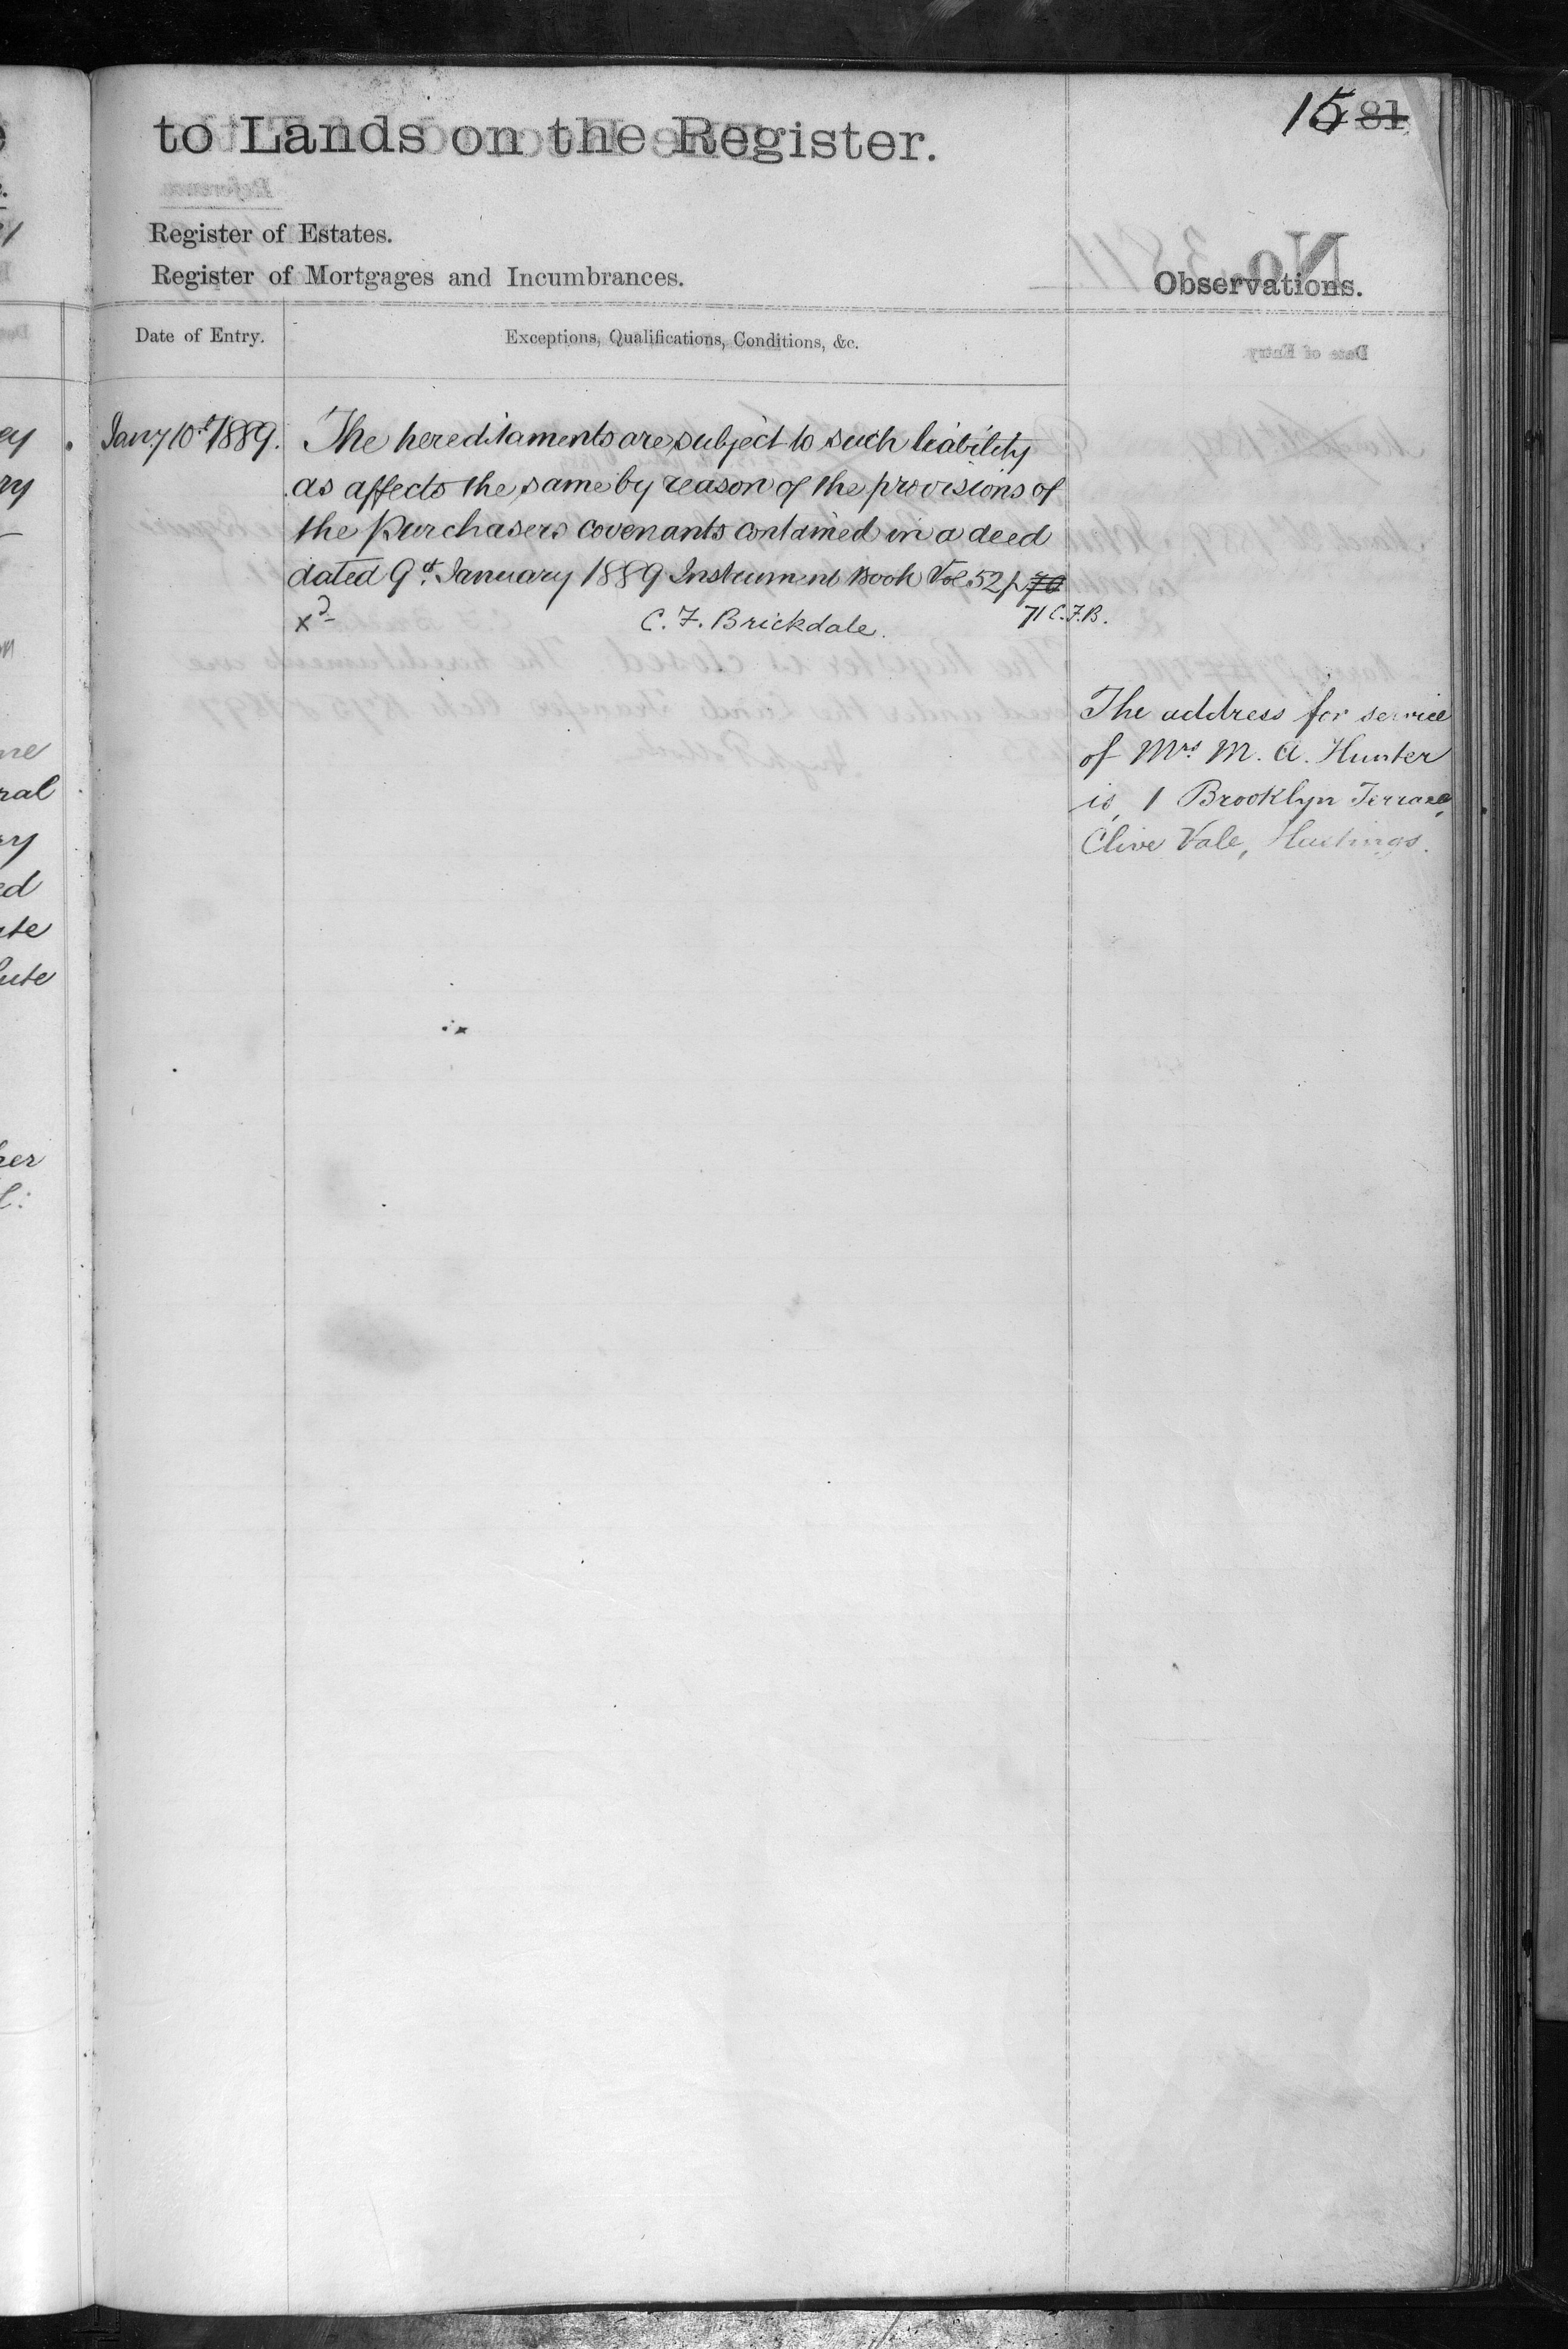 15 81
to Lands on the Register.
Register of Estates.
Register of Mortgages and Incumbrances.
Observations.
Date of Entry.
Exceptions, Qualifications, Conditions, &c.
Jany 10th 1889.
The hereditaments are subject to such liability
as affects the same by reason of the provisions of
the Purchasers covenants contained in a deed
dated 9th January 1889 Instrument Book Vol. 52 p 70
71 C.F.B.
C. F. Brickdale.
The address for service
of Mrs M. A. Hunter
is, 1 Brooklyn Terrace,
Clive Vale, Hastings.